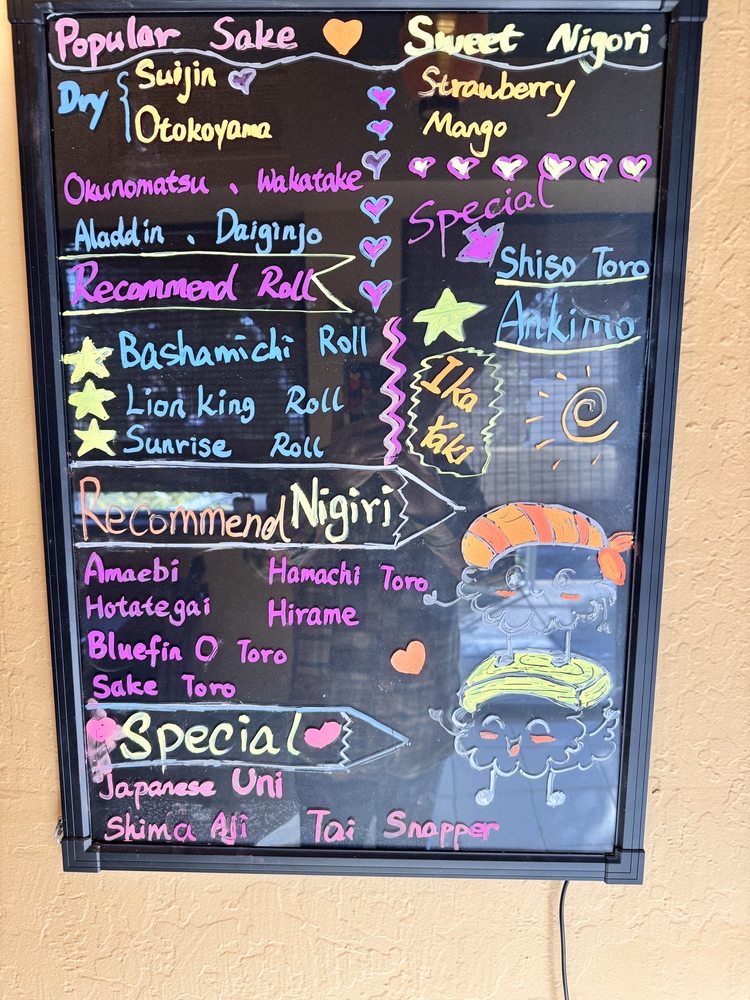 Popular Sake
Dry
Suijin
Otokoyama
Okunomatsu、Wakatake
Aladdin、Daiginjo
Sweet Nigori
Strawberry
Mango
Special
Shiso Toro
Ankimo
Ika
taki
Recommend Roll
Bashamichi Roll
Lion king Roll
Sunrise Roll
Recommend Nigiri
Amaebi Hamachi Toro
Hotategai Hirame
Bluefin O Toro
Sake Toro
Special
Japanese Uni
Shima Aji Tai Snapper